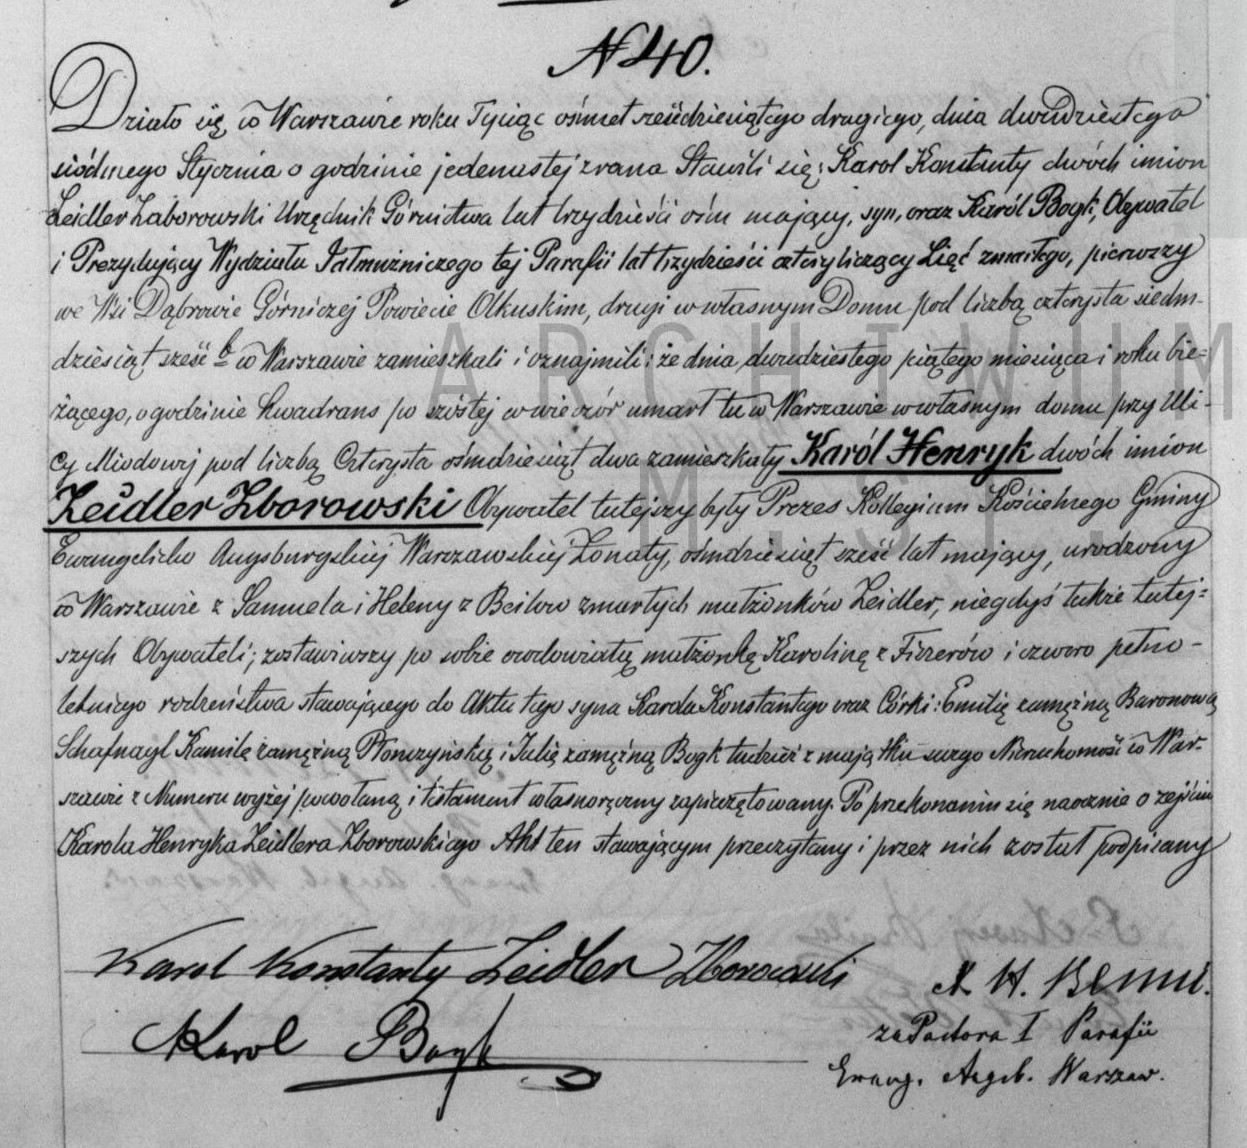 N 40.
Działo się w Warszawie roku Tysiąc ośmset sześćdziesiątego drugiego, dnia dwudziestego
siódmego Stycznia o godzinie jedenastej zrana Stawili się: Karol Konstanty dwóch imion
Zeidler Zaborowski Urzędnik Górnictwa lat trzydzieści ośm mający, syn, oraz Karól Bogk, Obywatel
i Prezydujący Wydziału Jałmużniczego tej Parafii lat trzydzieści cztery liczący Zięć zmarłego, pierwszy
we Wsi Dąbrowie Górniczej Powiecie Olkuskim, drugi w własnym Domu pod liczbą czterysta siedm-
dziesiąt sześć b w Warszawie zamieszkali i oznajmili: że dnia dwudziestego piątego miesiąca i roku bie=
żącego, o godzinie kwadrans po szóstej w wieczór umarł tu w Warszawie w własnym domu przy Uli-
cy Miodowej pod liczbą Czterysta ośmdziesiąt dwa zamieszkały Karól Henryk dwóch imion
Zeidler Zborowski Obywatel tutejszy były Prezes Kollegium Kościelnego Gminy
Ewangelicko Augsburgskiej Warszawskiej Żonaty, ośmdziesiąt sześć lat mający, urodzony
w Warszawie z Samuela i Heleny z zmarłych małżonków Zeidler, niegdyś także tutej=
szych Obywateli; zostawiwszy po sobie owdowiałą małżonkę Karolinę z Fiszerów i czworo pełno-
letniego rodzeństwa stawającego do Aktu tego syna Karola Konstantego oraz Córki: Emilię zamężną Baronową
Schafnagl Kamilę zamężną Płonczyńską i Julię zamężną Bogk tudzież z majątku swego Nieruchomość w War-
szawie z Numeru wyżej powołaną i testament własnoręczny zapieczętowany. Po przekonaniu się naocznie o zejściu
Karola Henryka Zeidlera Zborowskiego Akt ten stawającym przeczytany i przez nich został podpisany
Karol Konstanty Zeidler Zborowski
Karol Bogk
za Pastora I Parafii
Ewang. Augsb. Warszaw.
ARCHIWUM
M. ST.